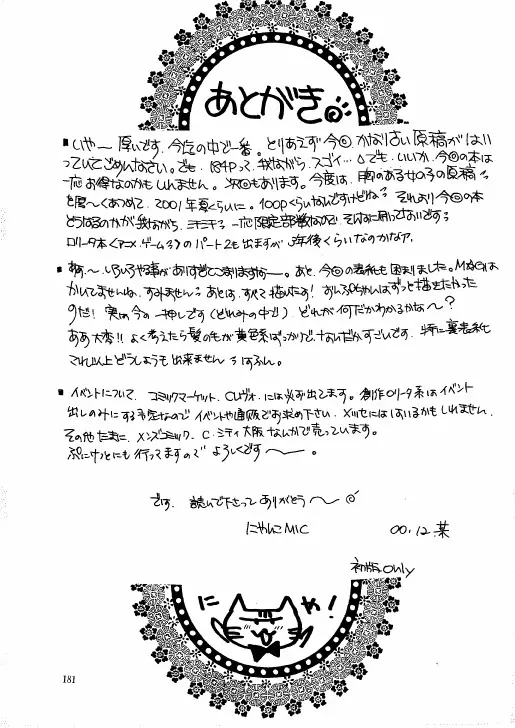 あとがき
▪いや〜 厚いです。今迄の中で一番。とりあえず今回 かなり古い原稿がはいっていてごめんなさい。でも、184Pって、我ながら スゴイ…。でも、いいか、今回の本は
一応お得なのかもしれません。次回もあります。今度は、胸のある女の子の原稿
を暖〜くあつめて、2001年夏くらいに。100pくらいなんですけどね。それより今回の本
どうなるのかが我ながら、一応限定部数なので
ロリータ本〈アニメ・ゲーム〉のパート2も出ますが、年後くらいなのかなァ。
▪あと、今回の表紙も困りました。
かいてませんね、すみません。あとは、すべて描いたぞ!おんぷちゃんはずっと描きたかった
のだ!実は今の一押しです(どれみの中で)どれが何だかわかるかな〜?
ああ大変!!よく考えたら髪の毛が黄色系ばっかりで 特に裏表紙
これ以上どうしようも出来ません
▪イベントについて、コミックマーケット、Cレヴォ、には必ず出てます。創作ロリータ系はイベント
出しのみにする予定なので イベントや通販でお求め下さい。メッセにははいるかもしれません。
その他たまに、メンズコミック、C.シティ大阪なんかで売っています。
ぷにケットにも行ってますので よろしくです〜。
では、読んで下さって ありがとう〜
にゃんこMIC 00.12.某
初版only
にゃ!
181